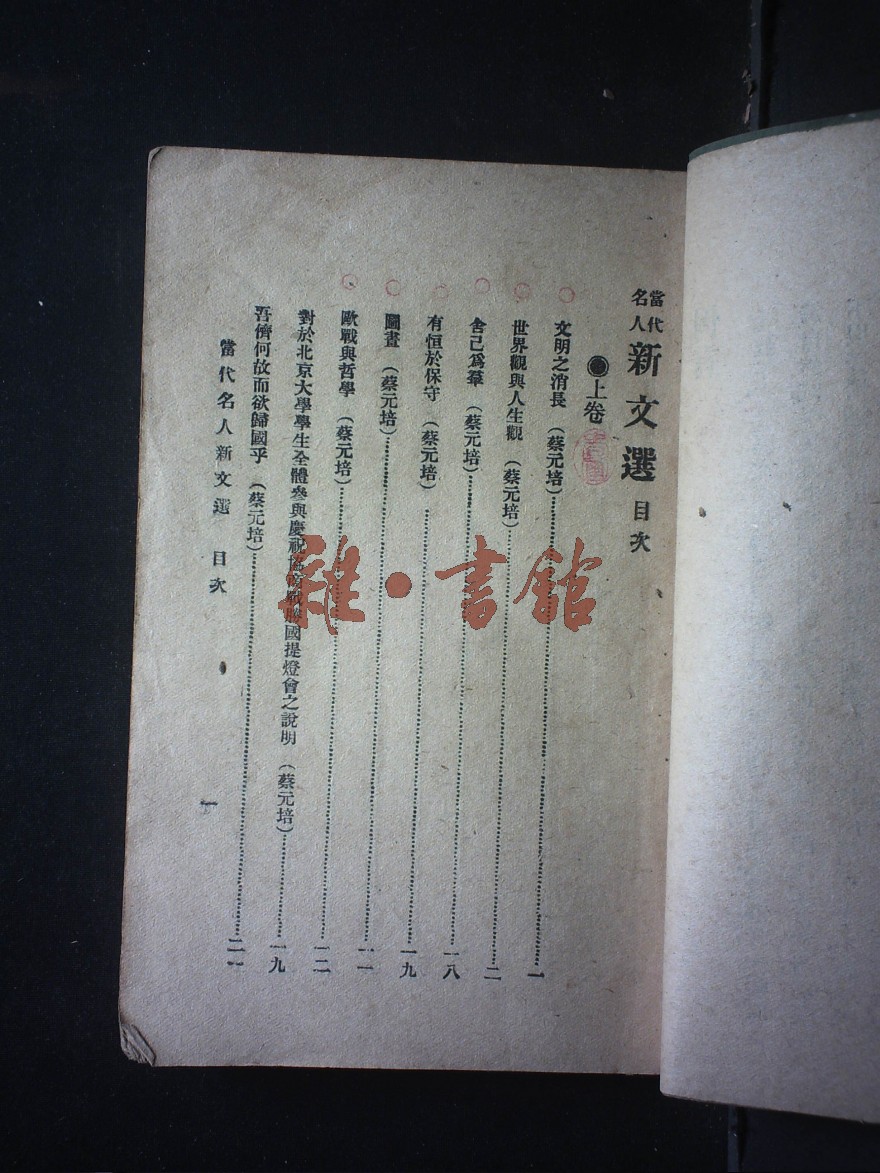 當代名人新文選 目次
●上卷
文明之消長 (蔡元培)……一
世界觀與人生觀 (蔡元培)……二
舍己爲羣 (蔡元培)……一八
有恒於保守 (蔡元培)……一九
圖畫 (蔡元培)……一一
歐戰與哲學 (蔡元培)……一二
對於北京大學學生全體參與慶祝協約戰勝國提燈會之說明 (蔡元培)……一九
吾儕何故而欲歸國乎 (蔡元培)……二一
當代名人新文選 目次
一
雜·書館